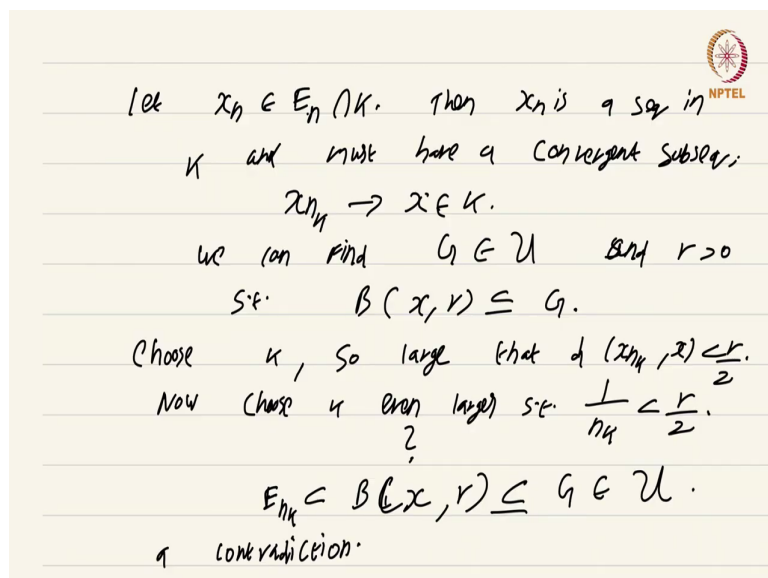 NPTEL
let xn ∈ En ∩ K. Then xn is a seq in
K and must have a convergent subseq.
xnk → x ∈ K.
we can find G ∈ U and r > 0
s.t. B(x, r) ⊆ G.
Choose k, so large that d(xnk, x) < r/2.
Now choose k even larger s.t. 1/nk < r/2.
?
Enk ⊂ B(x, r) ⊆ G ∈ U.
a contradiction.